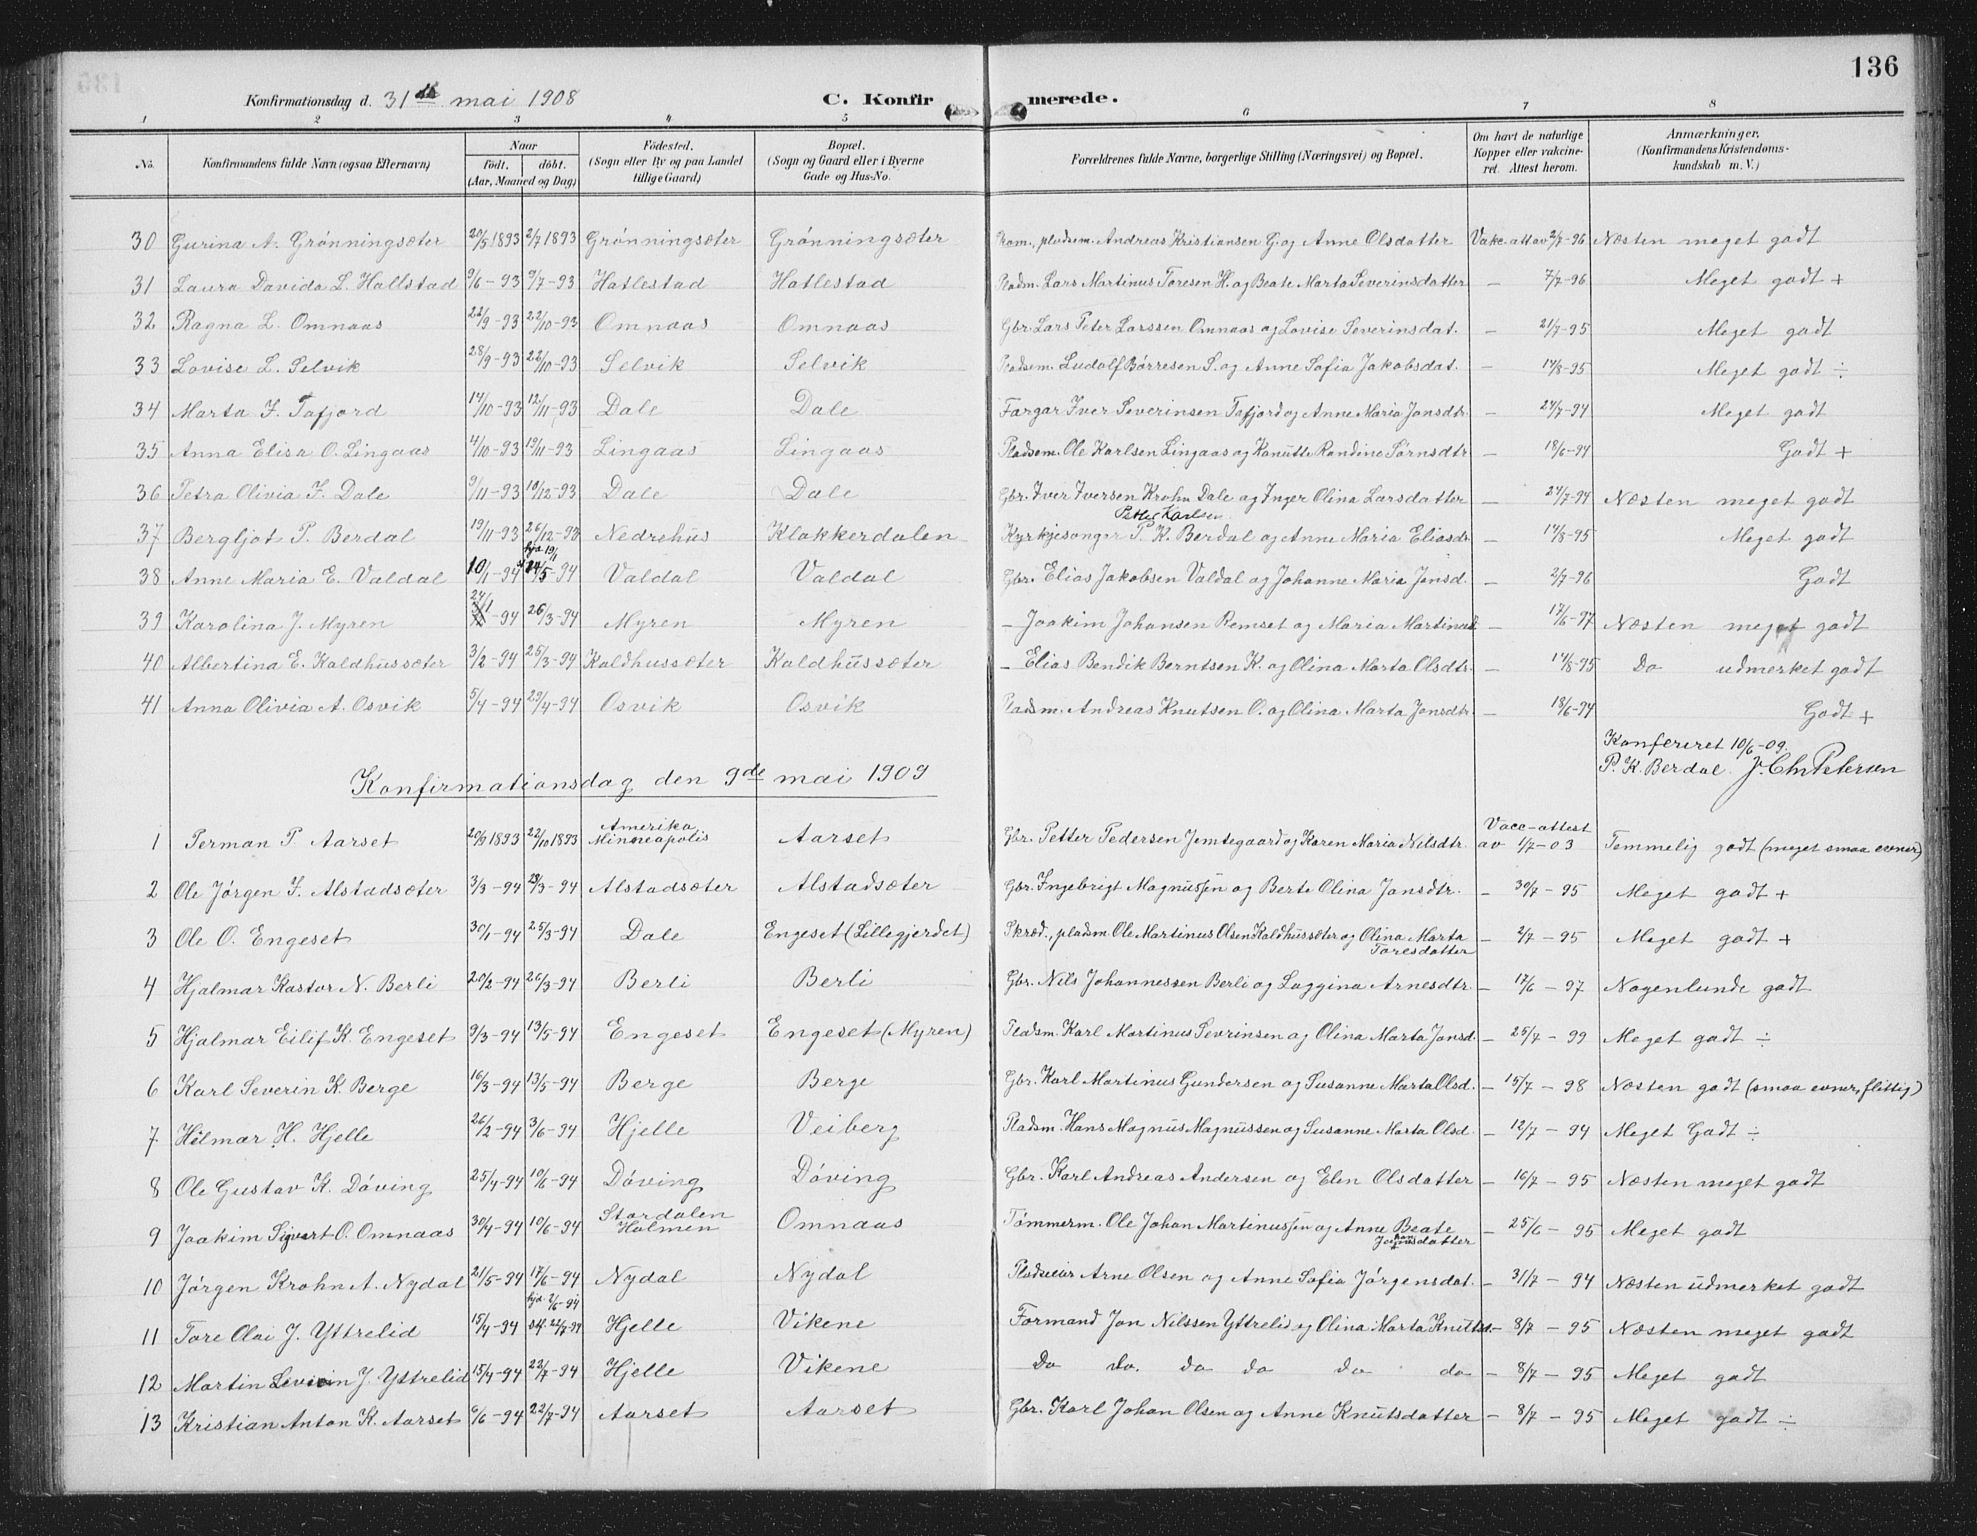 136
Konfirmationsdag d. 31te mai 1908
C. Konfirmerede.
1 2 3 4 5 6 7 8
No. Konfirmandens fulde Navn (ogsaa Efternavn) Naar født. døbt. (Aar, Maaned og Dag) Fødested. (Sogn eller By og paa Landet tillige Gaard) Bopæl. (Sogn og Gaard eller i Byerne Gade og Hus-No. Forældrenes fulde Navne, borgerlige Stilling (Næringsvei) og Bopæl. Om havt de naturlige Kopper eller vakcineret. Attest herom. Anmærkninger. (Konfirmandens Kristendomskundskab m. V.)
30 Gurina A. Grønningsæter 20/5 1893 2/7 1893 Grønningsæter Grønningsæter pladsm. Andreas Kristiansen G. og Anne Olsdatter Vakc. att av 2/7-96 Næsten meget godt
31 Laura Davida L. Hallstad 9/6-93 9/7-93 Hatlestad Hatlestad Pladsm. Lars Martinus Toresen H. og Beate Marta Severinsdatter — 7/7-96 Meget godt +
32 Ragna L. Omnaas 22/9-93 22/10-93 Omnaas Omnaas Gbr. Lars Peter Larssen Omnaas og Lovise Severinsdat. — 21/7-95 Meget godt
33 Lovise L. Selvik 28/9-93 22/10-93 Selvik Selvik Pladsm. Ludolf Børresen S. og Anne Sofia Jakobsdat. — 14/8-95 Meget godt ÷
34 Marta I. Tafjord 14/10-93 12/11-93 Dale Dale Fargar Iver Severinsen Tafjord og Anne Maria Jonsdtr. — 24/7-94 Meget godt
35 Anna Elisa O. Lingaas 4/10-93 19/11-93 Lingaas Lingaas Pladsm. Ole Karlsen Lingaas og Kanutte Randine Tørnsdtr — 18/6-94 Godt +
36 Petra Olivia I. Dale 9/11-93 10/12-93 Dale Dale Gbr. Iver Iversen Krohn Dale og Inger Olina Larsdatter — 24/7-94 Næsten meget godt
Petter Karlsen
37 Bergljot P. Berdal 19/11-93 26/12-93 Nedrehus Klokkerdalen Kyrkjesongar P. K. Berdal og Anne Maria Eliasdr — 14/8-95 Meget godt
hjd 19/1
38 Anne Maria E. Valdal 10/1-94 14/5-94 Valdal Valdal Gbr. Elias Jakobsen Valdal og Johanne Maria Jonsd. — 2/7-96 Godt
24/1
39 Karolina J. Myren -94 26/3-94 Myren Myren — Joakim Johansen Remset og Maria Martinusd — 17/6-97 Næsten meget godt
40 Albertina E. Kaldhussæter 3/2-94 25/3-94 Kaldhussæter Kaldhussæter — Elias Bendik Berntsen K. og Olina Marta Olsdtr. — 14/8-95 Do udmerket godt
41 Anna Olivia A. Osvik 5/4-94 29/4-94 Osvik Osvik Pladsm. Andreas Knutsen O. og Olina Marta Jonsdtr. — 18/6-94 Godt +
Konfereret 10/6-09.
P. K. Berdal. J. Chr Petersen
Konfirmationsdag den 9de mai 1909
1 Perman P. Aarset 20/9 1893 22/10 1893 Amerika Minneapolis Aarset Gbr. Petter Pedersen Jemtegaard og Karen Maria Nilsdtr. Vacc-attest av 1/7-03 Temmelig godt (meget smaa evner)
2 Ole Jørgen I. Alstadsæter 3/3-94 29/3-94 Alstadsæter Alstadsæter Gbr. Ingebrigt Magnussen og Berte Olina Jonsdtr. — 30/7-95 Meget godt +
3 Ole O. Engeset 30/1-94 25/3-94 Dale Engeset (Lillegjerdet) Skræd., pladsm. Ole Martinus Olsen Kaldhussæter og Olina Marta Toresdatter — 2/7-95 Meget godt +
4 Hjalmar Kastor N. Berli 20/2-94 26/3-94 Berli Berli Gbr. Nils Johannessen Berli og Laggina Arnesdtr. — 17/6-97 Nogenlunde godt
5 Hjalmar Eilif K. Engeset 9/3-94 13/5-94 Engeset Engeset (Myren) Pladsm. Karl Martinus Sevrinsen og Olina Marta Jonsd. — 25/7-99 Meget godt ÷
6 Karl Severin K. Berge 16/3-94 13/5-94 Berge Berge Gbr. Karl Martinus Gundersen og Susanne Marta Olsd. — 15/7-98 Næsten godt (smaa evner, flittig)
7 Hilmar H. Hjelle 26/2-94 3/6-94 Hjelle Veiberg Pladsm. Hans Magnus Magnussen og Susanne Marta Olsd. — 12/7-94 Meget Godt ÷
8 Ole Gustav K. Døving 25/4-94 10/6-94 Døving Døving Gbr. Karl Andreas Andersen og Elen Olsdatter — 16/7-95 Næsten meget godt
9 Joakim Sigvart O. Omnaas 30/4-94 10/6-94 Stordalen Holmen Omnaas Tømmerm. Ole Johan Martinussen og Anne Beate — 25/6-95 Meget godt
10 Jørgen Krohn A. Nydal 21/5-94 17/6-94 Nydal Nydal Pladseier Arne Olsen og Anne Sofia Jørgensdat. — 31/7-94 Næsten udmerket godt
hjd. 2/6-94
11 Tore Olai J. Yttrelid 15/4-94 stf. 22/7-94 Hjelle Vikene Formand Jon Nilssen Yttrelid og Olina Marta Knutsd. — 8/7-95 Næsten meget godt
12 Martin Severin J. Yttrelid 15/4-94 22/7-94 Hjelle Vikene Do do. do do do do — 8/7-95 Meget godt
13 Kristian Anton K. Aarset 6/6-94 22/7-94 Aarset Aarset Gbr. Karl Johan Olsen og Anne Knutsdatter — 8/7-95 Meget godt ÷